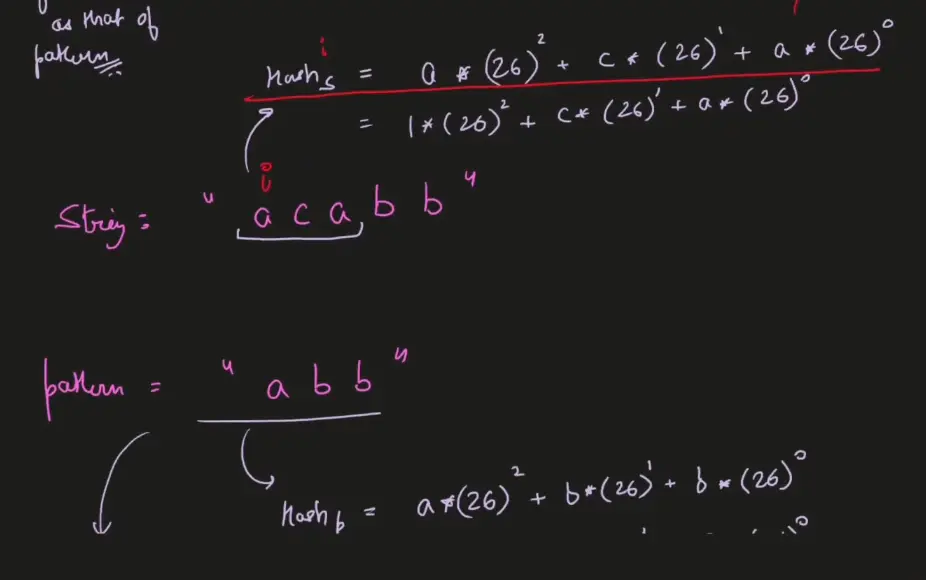 as that of
pattern
i
Hash_s = a * (26)² + c * (26)¹ + a * (26)⁰
= 1 * (26)² + c * (26)¹ + a * (26)⁰
i
String = " a c a b b "
pattern = " a b b "
Hash_p = a * (26)² + b * (26)¹ + b * (26)⁰